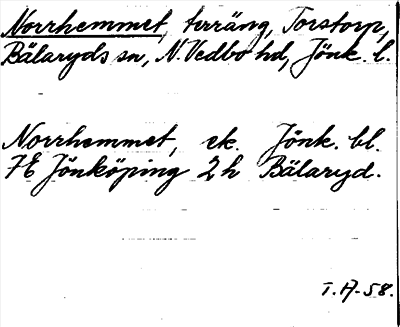 Norrhemmet, terräng, Torstorp,
Bälaryds sn, N. Vedbo hd, Jönk. l.
Norrhemmet, ek. Jönk. bl.
7E Jönköping 2h Bälaryd.
T. A-58.